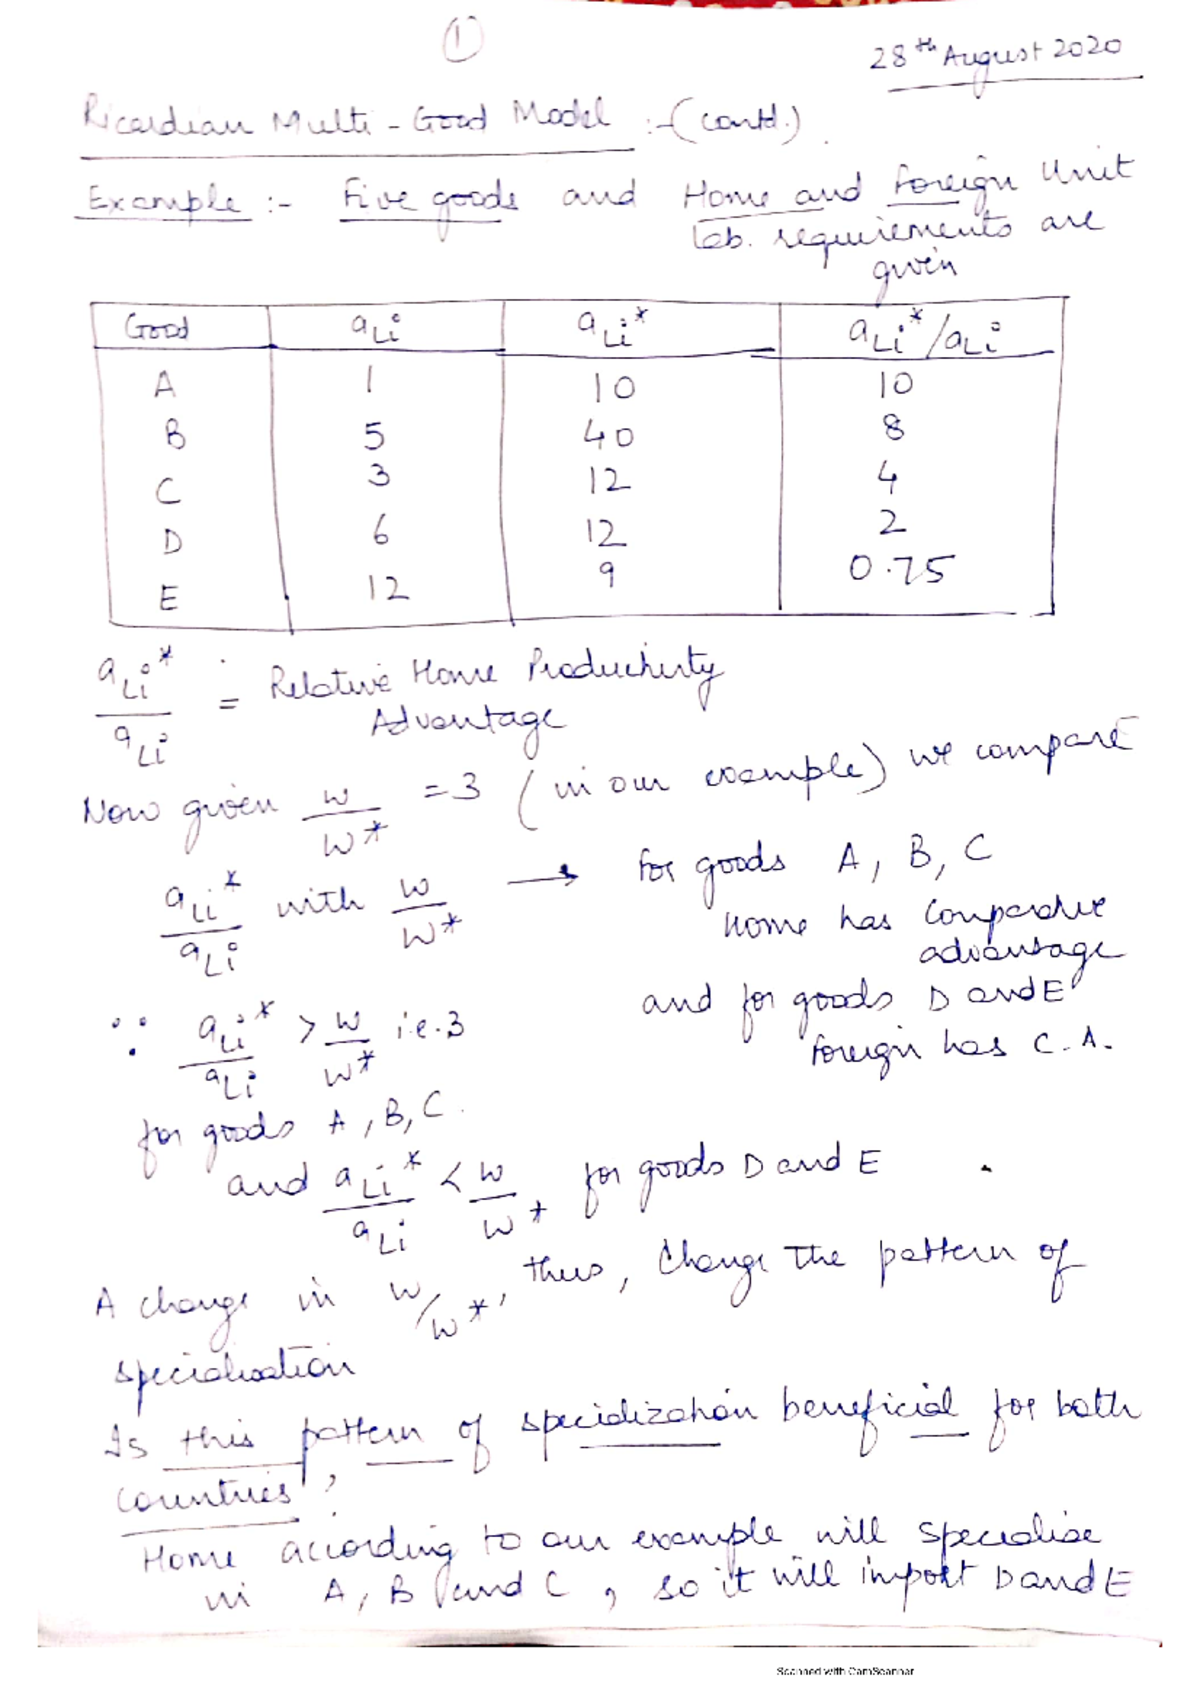 1
28th August 2020
Ricardian Multi-Good Model :-(contd.)
Example :- Five goods and Home and Foreign Unit
Lab. requirements are
given
Good aLi aLi* aLi*/aLi
A 1 10 10
B 5 40 8
C 3 12 4
D 6 12 2
E 12 9 0.75
aLi*/aLi = Relative Home Productivity
Advantage
Now given w/w* = 3 (in our example) we compare
aLi*/aLi with w/w* → for goods A, B, C
Home has Comparative
advantage
and for goods D and E
Foreign has C.A.
∵ aLi*/aLi > w/w* i.e. 3
for goods A, B, C.
and aLi*/aLi < w/w* for goods D and E
A change in w/w*, thus, Change The pattern of
specialisation
Is this pattern of specialization beneficial for both
countries?
Home according to our example will specialise
in A, B and C, so it will import D and E
Scanned with CamScanner